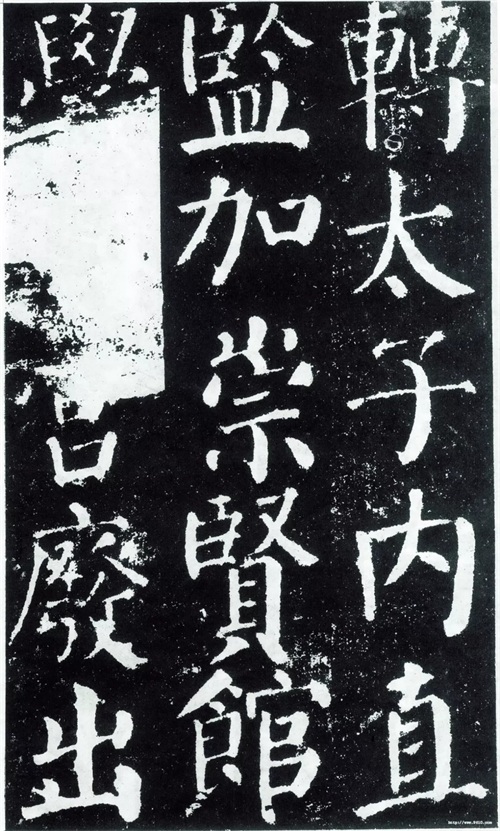 轉太子內直
監加崇賢館
學廢出